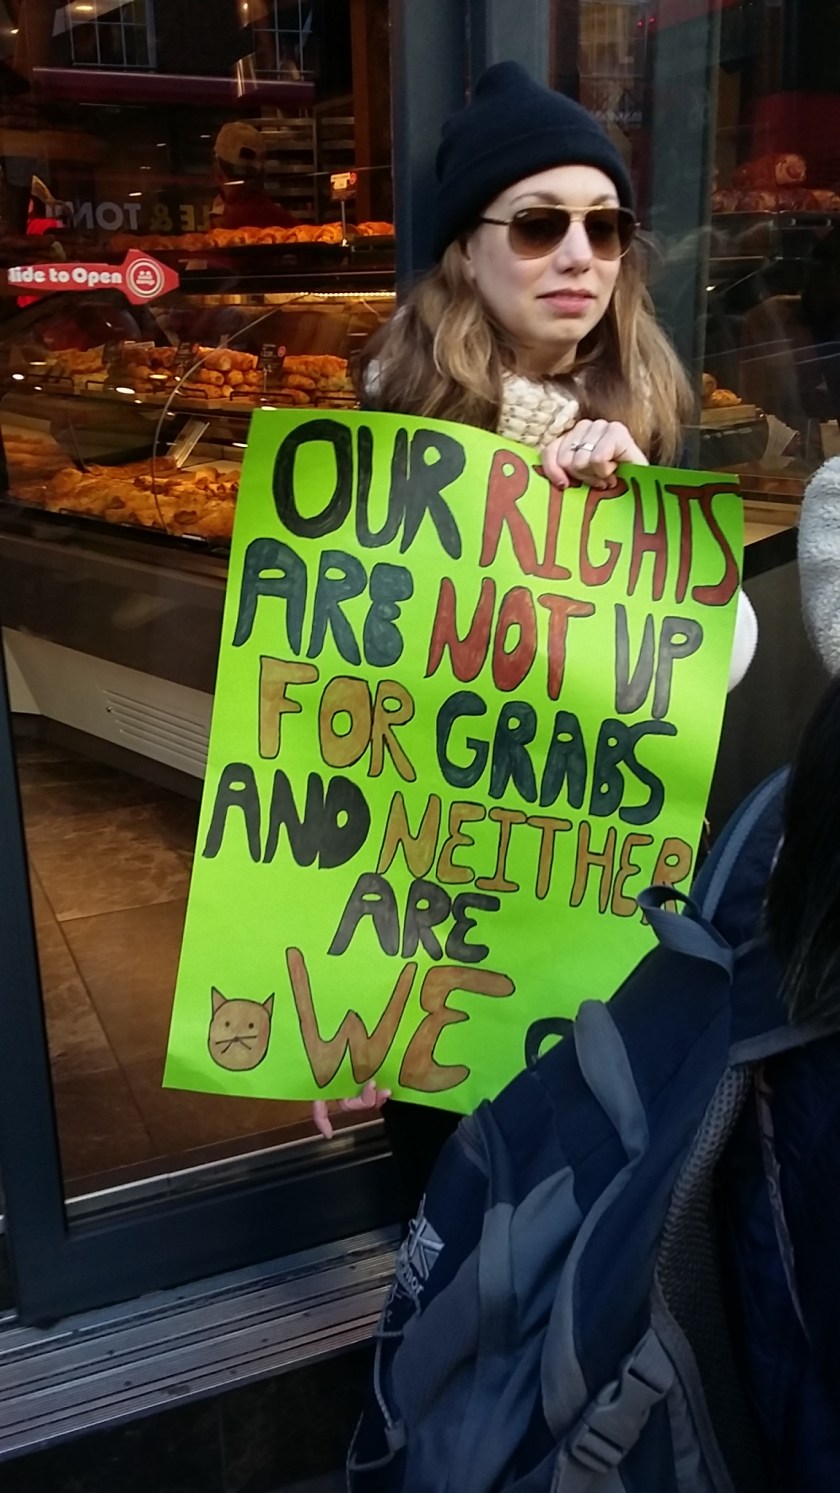 lide to Open
LE & TON
OUR RIGHTS
ARE NOT UP
FOR GRABS
AND NEITHER
ARE
WE